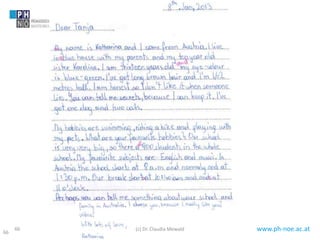 PH NÖ PÄDAGOGISCHE HOCHSCHULE
8th Jan, 2013
Dear Tanja,
My name is Katharina and I come from Austria. I live
in a house with my parents and my year old
sister Karoline. I am thirteen years old. my eye colour
is blue-green. I've got long brown hair and I'm
metres tall. I am honest so I don't like it when someone
lies. You can tell me secrets, because I can keep it. I've
got one dog and two cats.
My hobbies are swimming, riding a bike and playing with
my pets. What are your favourite hobbies? Our school
is very very big, so there's 900 students in the whole
school. My favourite subjects are English and music. In
Austria the school starts at 8 a.m and normally end at
1:30 p.m. Our break starts at 10 to and end at
o'clock.
Perhaps you can tell me something about your school and
family in Australia. I choose you, because I really like your
video!
With lots of love,
Katharina
66
66
(c) Dr. Claudia Mewald
www.ph-noe.ac.at